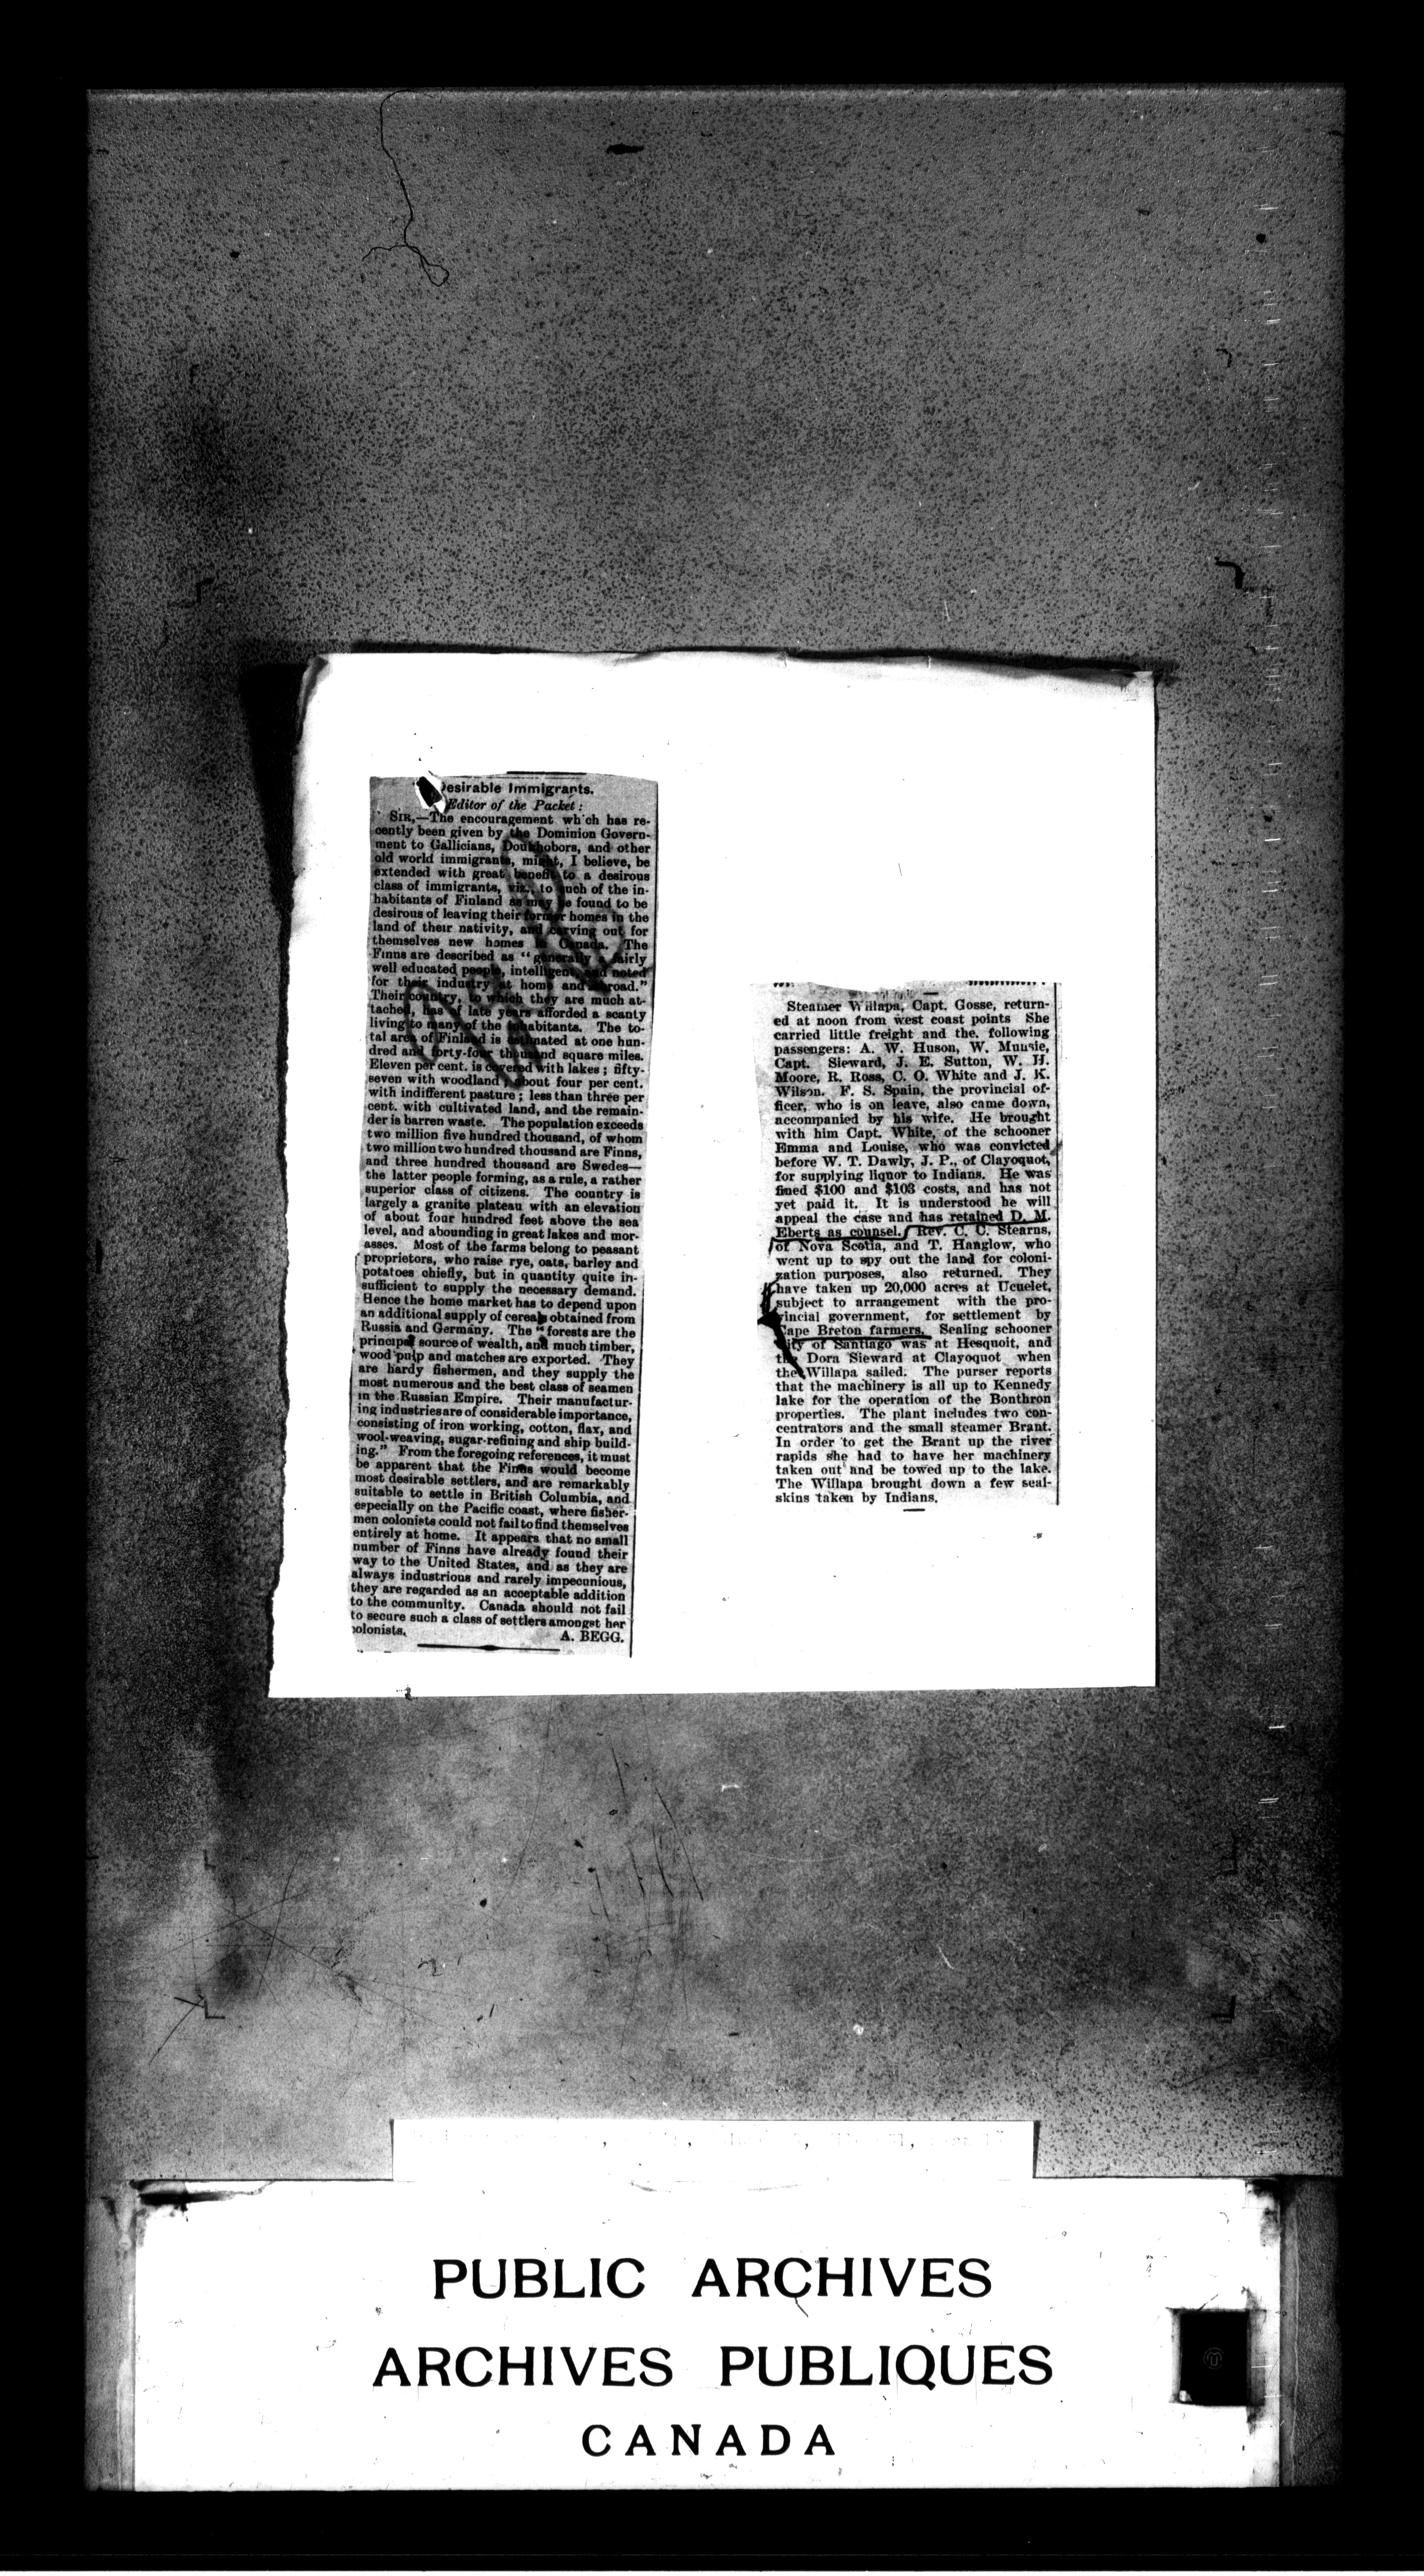 esirable Immigrants.
Editor of the Packet:
SIR,—The encouragement which has re-
cently been given by the Dominion Govern-
ment to Gallicians, Doukhobors, and other
old world immigrants, might, I believe, be
extended with great benefit to a desirous
class of immigrants, viz., to such of the in-
habitants of Finland as may be found to be
desirous of leaving their former homes in the
land of their nativity, and carving out for
themselves new homes in Canada. The
Finns are described as "generally a fairly
well educated people, intelligent, and noted
for their industry at home and abroad."
Their country, to which they are much at-
tached, has of late years afforded a scanty
living to many of the inhabitants. The to-
tal area of Finland is estimated at one hun-
dred and forty-four thousand square miles.
Eleven per cent. is covered with lakes; fifty-
seven with woodland; about four per cent.
with indifferent pasture; less than three per
cent. with cultivated land, and the remain-
der is barren waste. The population exceeds
two million five hundred thousand, of whom
two million two hundred thousand are Finns,
and three hundred thousand are Swedes—
the latter people forming, as a rule, a rather
superior class of citizens. The country is
largely a granite plateau with an elevation
of about four hundred feet above the sea
level, and abounding in great lakes and mor-
asses. Most of the farms belong to peasant
proprietors, who raise rye, oats, barley and
potatoes chiefly, but in quantity quite in-
sufficient to supply the necessary demand.
Hence the home market has to depend upon
an additional supply of cereals obtained from
Russia and Germany. The "forests are the
principal source of wealth, and much timber,
wood pulp and matches are exported. They
are hardy fishermen, and they supply the
most numerous and the best class of seamen
in the Russian Empire. Their manufactur-
ing industries are of considerable importance,
consisting of iron working, cotton, flax, and
wool-weaving, sugar-refining and ship build-
ing." From the foregoing references, it must
be apparent that the Finns would become
most desirable settlers, and are remarkably
suitable to settle in British Columbia, and
especially on the Pacific coast, where fisher-
men colonists could not fail to find themselves
entirely at home. It appears that no small
number of Finns have already found their
way to the United States, and as they are
always industrious and rarely impecunious,
they are regarded as an acceptable addition
to the community. Canada should not fail
to secure such a class of settlers amongst her
colonists. A. BEGG.
Steamer Willapa, Capt. Gosse, return-
ed at noon from west coast points She
carried little freight and the following
passengers: A. W. Huson, W. Munsie,
Capt. Sieward, J. E. Sutton, W. H.
Moore, R. Ross, C. O. White and J. K.
Wilson. F. S. Spain, the provincial of-
ficer, who is on leave, also came down,
accompanied by his wife. He brought
with him Capt. White, of the schooner
Emma and Louise, who was convicted
before W. T. Dawly, J. P., of Clayoquot,
for supplying liquor to Indians. He was
fined $100 and $103 costs, and has not
yet paid it. It is understood he will
appeal the case and has retained D. M.
Eberts as counsel. Rev. C. C. Stearns,
of Nova Scotia, and T. Hanglow, who
went up to spy out the land for coloni-
zation purposes, also returned. They
have taken up 20,000 acres at Ucuelet,
subject to arrangement with the pro-
vincial government, for settlement by
Cape Breton farmers. Sealing schooner
City of Santiago was at Hesquoit, and
the Dora Sieward at Clayoquot when
the Willapa sailed. The purser reports
that the machinery is all up to Kennedy
lake for the operation of the Bonthron
properties. The plant includes two con-
centrators and the small steamer Brant.
In order to get the Brant up the river
rapids she had to have her machinery
taken out and be towed up to the lake.
The Willapa brought down a few seal-
skins taken by Indians.
PUBLIC ARCHIVES
ARCHIVES PUBLIQUES
CANADA